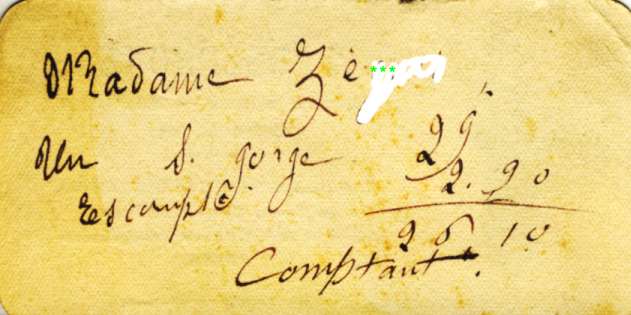 Madame Zè***
Un S. gorge 29,
Escompte. 2.90
26.10
Comptant.